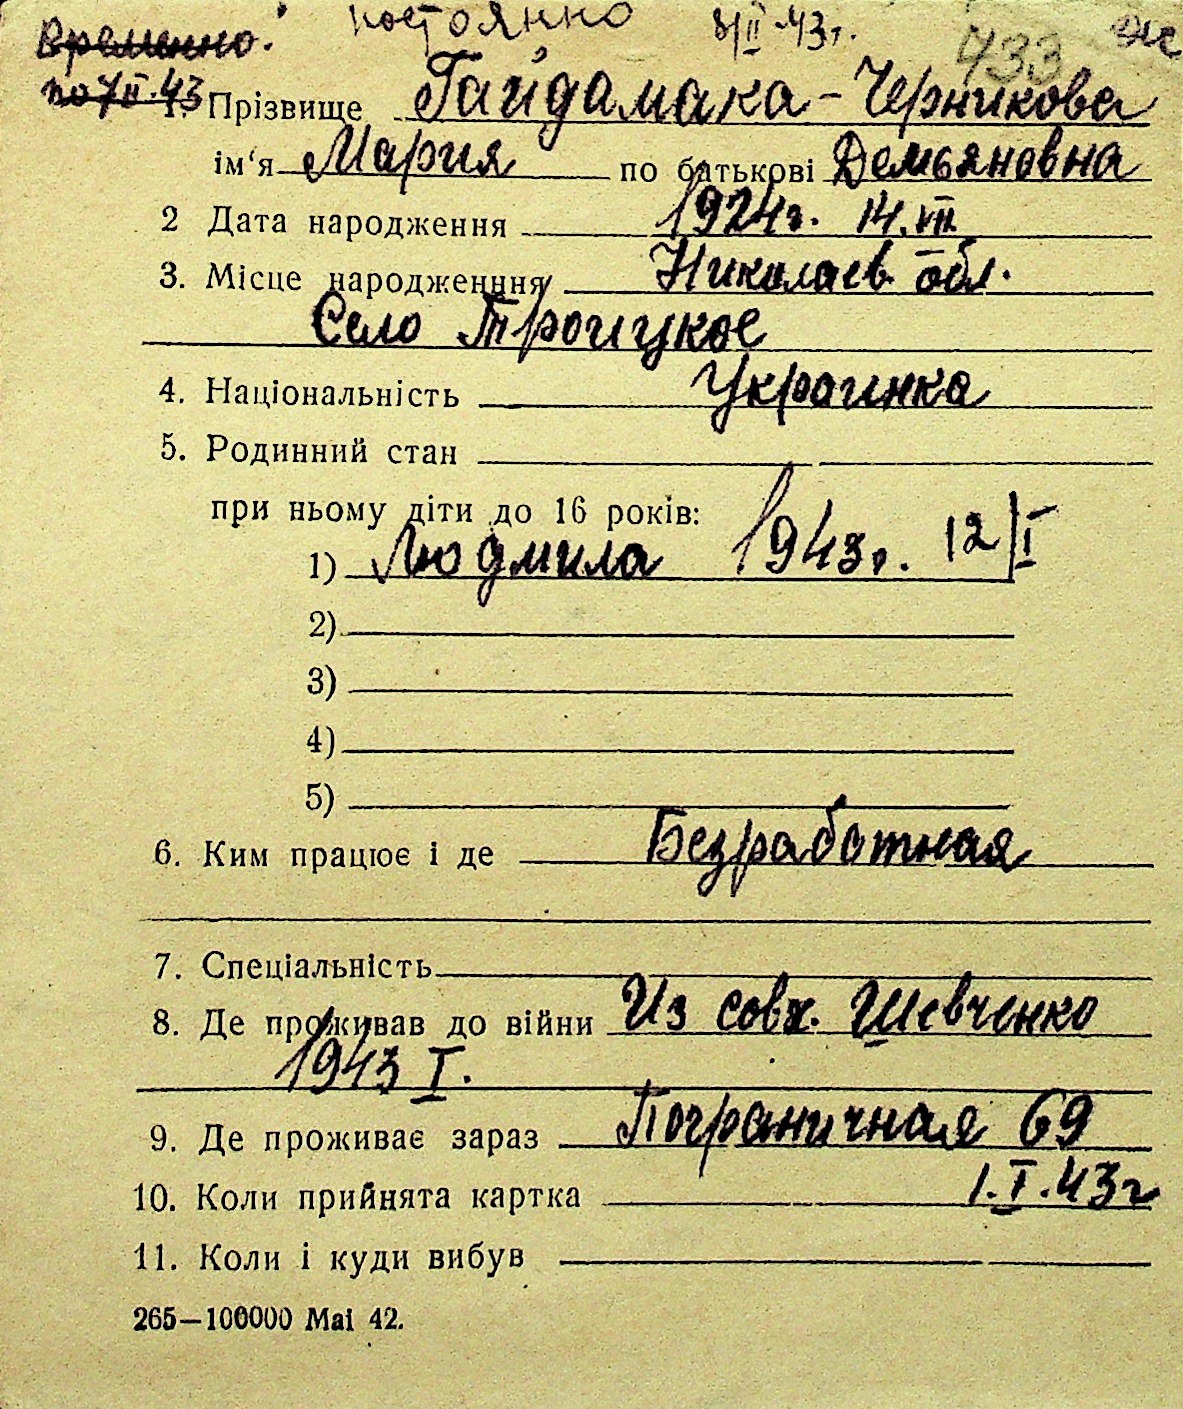 Временно. постоянно 8/II-43г. 433
по 7 II.43
1. Прізвище Гайдамака-Черникова
ім'я Мария по батькові Демьяновна
2 Дата народження 1924г. 14.VII
3. Місце народженння Николаев. обл.
Село Троицкое
4. Національність Украинка
5. Родинний стан
при ньому діти до 16 років:
1) Людмила 1943г. 12/I
2)
3)
4)
5)
6. Ким працює і де Безработная
7. Спеціальність
8. Де проживав до війни Из совх. Шевченко
1943 I.
9. Де проживає зараз Пограничная 69
10. Коли прийнята картка 1.I.43г
11. Коли і куди вибув
265—100000 Mai 42.